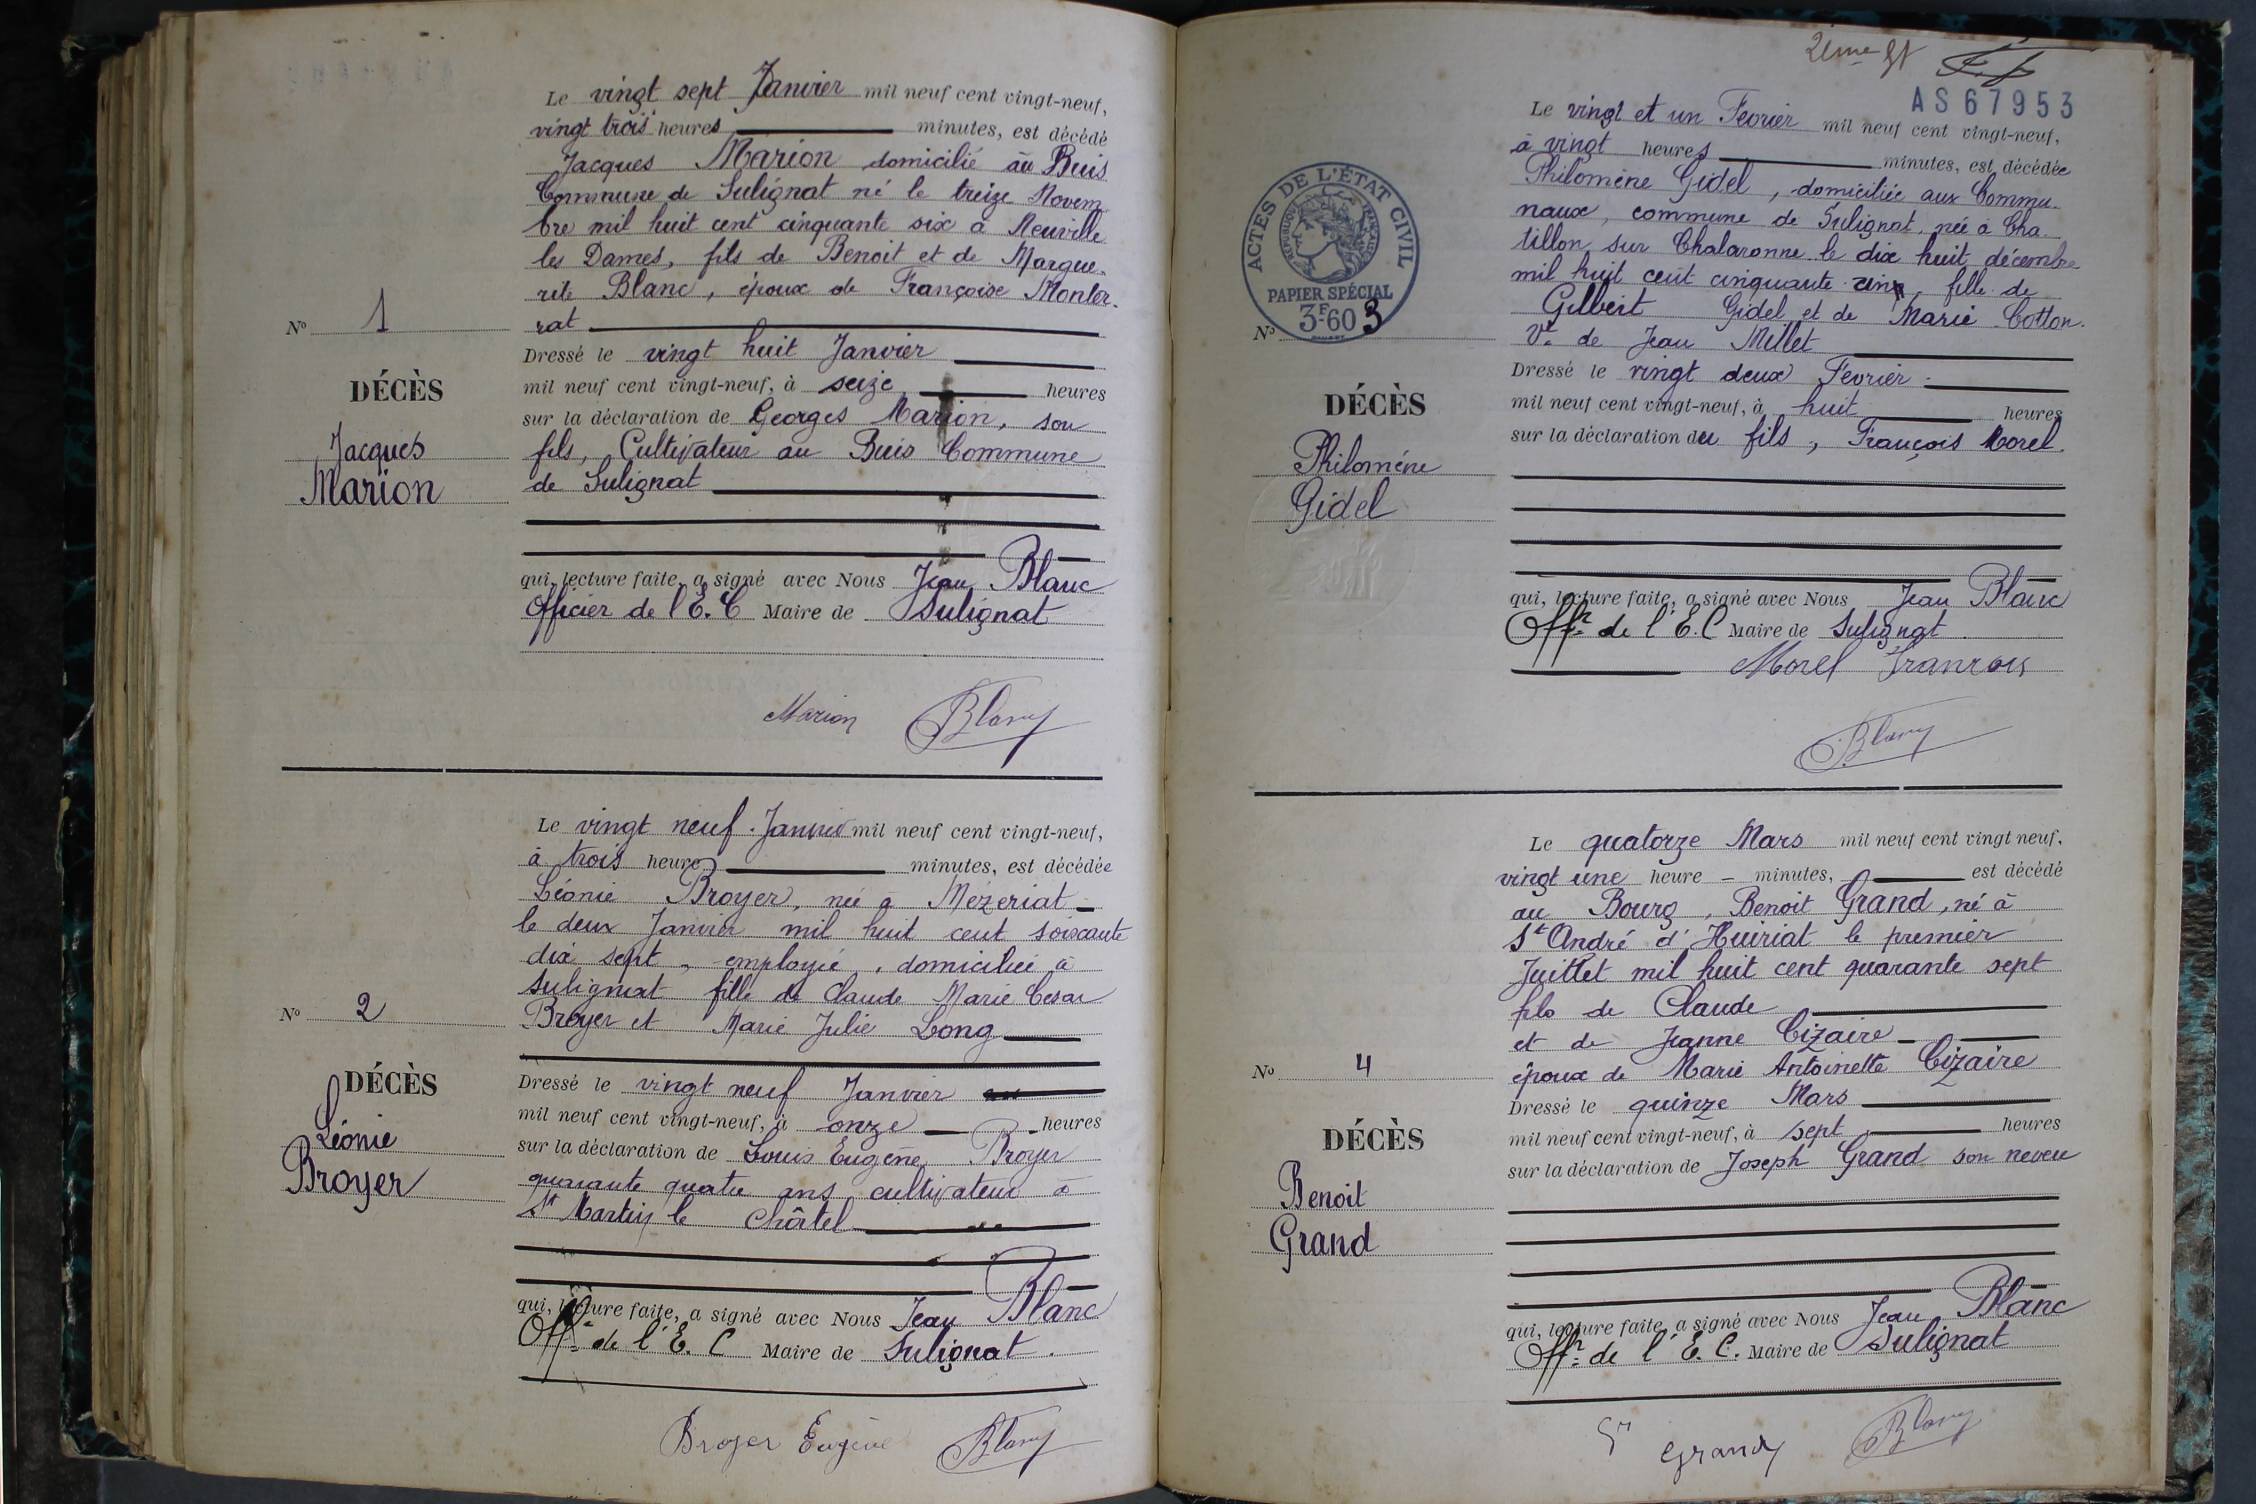 Le vingt sept Janvier mil neuf cent vingt-neuf,
vingt trois heures minutes, est décédé
Jacques Marion domicilié au Buis
Commune de Sulignat né le treize Novem
bre mil huit cent cinquante six à Neuville
les Dames, fils de Benoit et de Margue-
rite Blanc, époux de Françoise Monter-
rat
Nº 1
DÉCÈS
Jacques
Marion
Dressé le vingt huit Janvier
mil neuf cent vingt-neuf, à seize heures
sur la déclaration de Georges Marion, son
fils, Cultivateur au Buis Commune
de Sulignat
qui, lecture faite, a signé avec Nous Jean Blanc
Officier de l'E.C Maire de Sulignat
Marion Blanc
Le vingt neuf Janvier mil neuf cent vingt-neuf,
à trois heures minutes, est décédée
Léonie Broyer, née à Mézeriat
le deux Janvier mil huit cent soixante
dix sept, employée, domiciliée à
Sulignat fille de Claude Marie Cesar
Broyer et Marie Julie Long
Nº 2
DÉCÈS
Léonie
Broyer
Dressé le vingt neuf Janvier
mil neuf cent vingt-neuf, à onze heures
sur la déclaration de Louis Eugène Broyer
quarante quatre ans cultivateur à
St Martin le Châtel
qui, lecture faite, a signé avec Nous Jean Blanc
Offr de l'E. C Maire de Sulignat.
Broyer Eugène Blanc
2ème
AS67953
Le vingt et un Fevrier mil neuf cent vingt-neuf,
à vingt heures minutes, est décédée
Philomène Gidel, domiciliée aux Commu-
naux, commune de Sulignat, née à Cha-
tillon sur Chalaronne le dix huit décembre
mil huit cent cinquante cinq, fille de
Gilbert Gidel et de Marie Cotton.
Ve de Jean Millet
ACTES DE L'ÉTAT CIVIL
RÉPUBLIQUE FRANÇAISE
PAPIER SPÉCIAL
3F60
Nº 3
DÉCÈS
Philomène
Gidel
Dressé le vingt deux Fevrier
mil neuf cent vingt-neuf, à huit heures
sur la déclaration deu fils, François Morel
qui, lecture faite, a signé avec Nous Jean Blanc
Offr de l'E.C Maire de Sulignat
Morel François
Blanc
Le quatorze Mars mil neuf cent vingt neuf,
vingt une heure – minutes, est décédé
au Bourg, Benoit Grand, né à
St André d'Huiriat le premier
Juillet mil huit cent quarante sept
fils de Claude
et de Jeanne Cizaire
époux de Marie Antoinette Cizaire
Nº 4
DÉCÈS
Benoit
Grand
Dressé le quinze Mars
mil neuf cent vingt-neuf, à sept heures
sur la déclaration de Joseph Grand son neveu
qui, lecture faite, a signé avec Nous Jean Blanc
Offr de l'E.C. Maire de Sulignat
Grand Blanc